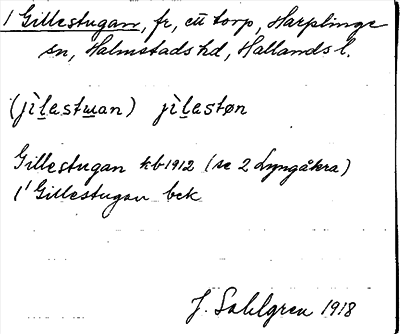 1 Gillestugan, fr, ett torp, Harplinge
sn, Halmstads hd, Hallands l.
(jìlastɯan) jìlastøn
Gillestugan kb 1912 (se 2 Lyngåkra)
1' Gillestugan bek
J. Sahlgren 1918